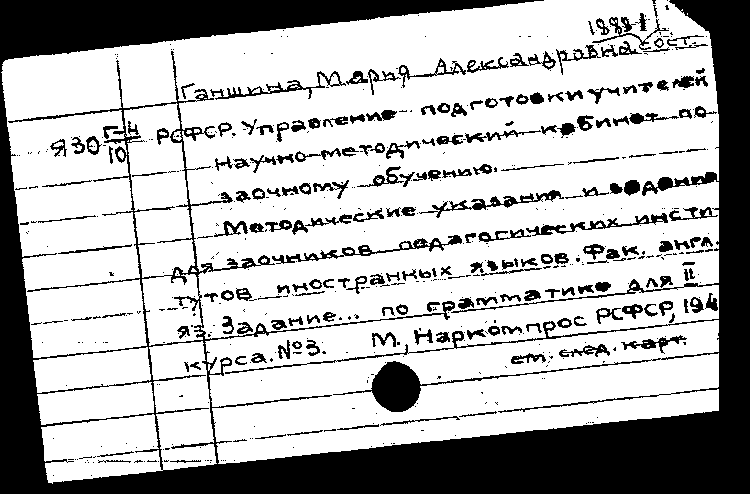 1888-
Ганшина, Мария Александровна сост.
Я30 Г-Н/10 РСФСР. Управление подготовки учителей
Научно-методический кабинет по
заочному обучению.
Методические указания и задания
для заочников педагогических инсти-
тутов иностранных языков. Фак. англ.
яз. Задание... по грамматике для II
курса. №3. М., Наркомпрос РСФСР, 194
см. след. карт.